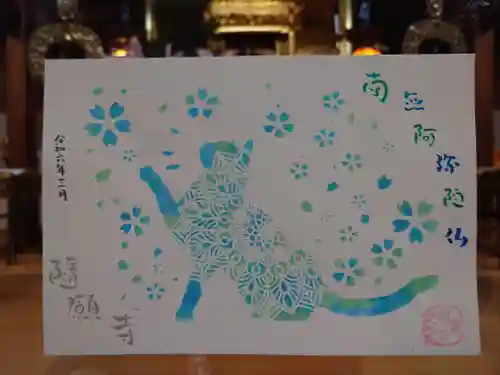 南無阿弥陀仏
令和六年十二月
隨願寺